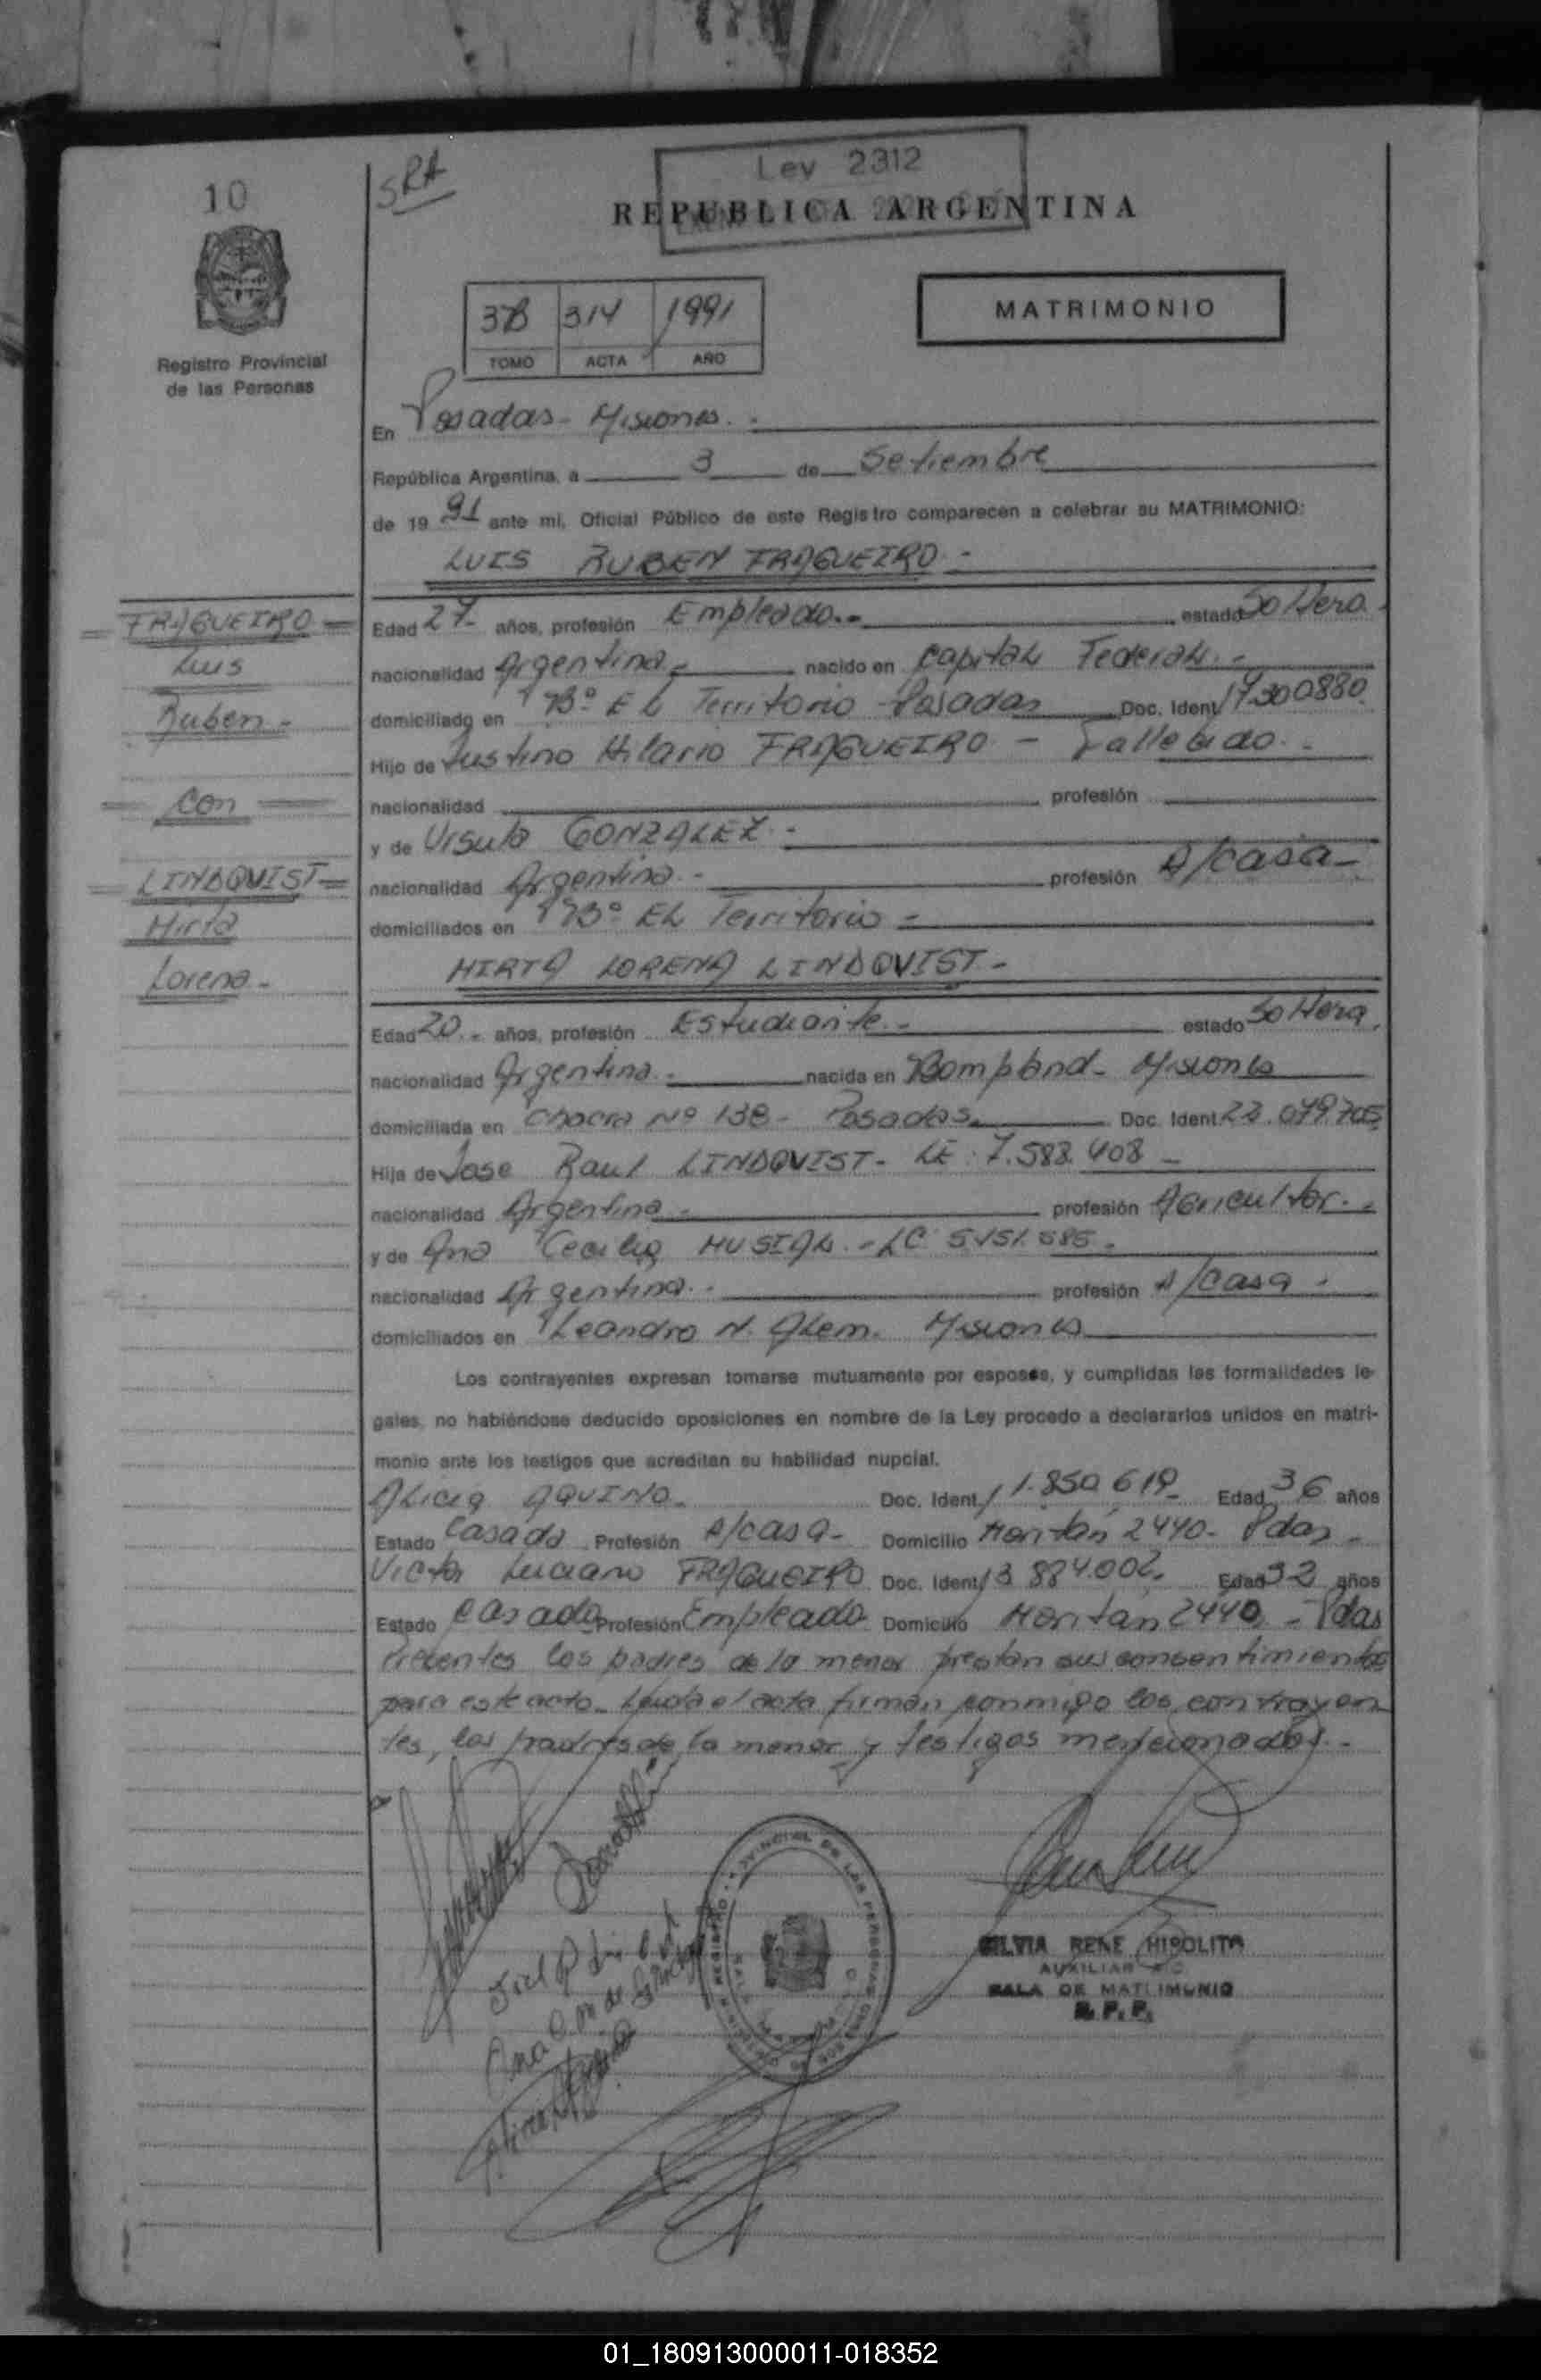 10
SRA
Ley 2312
REPUBLICA ARGENTINA
Registro Provincial
de las Personas
3B 314 1991
TOMO ACTA AÑO
MATRIMONIO
En Posadas - Misiones.-
República Argentina, a 3 de Setiembre
de 1991 ante mi, Oficial Público de este Registro comparecen a celebrar su MATRIMONIO:
LUIS RUBEN FRAGUEIRO -
Edad 27- años, profesión Empleado.- estado Soltero
nacionalidad Argentina.- nacido en Capital Federal.-
domiciliado en Bº El Territorio - Posadas Doc. Ident. 17.300880
Hijo de Justino Hilario FRAGUEIRO - Fallecido.-
nacionalidad profesión
y de Ursula GONZALEZ.-
nacionalidad Argentina.- profesión A/casa-
domiciliados en Bº El Territorio -
= FRAGUEIRO =
Luis
Ruben.-
= Con =
= LINDQUIST =
Mirta
Lorena.-
MIRTA LORENA LINDQUIST.-
Edad 20.- años, profesión Estudiante.- estado Soltera
nacionalidad Argentina.- nacida en Bompland - Misiones
domiciliada en Chacra Nº 138 - Posadas Doc. Ident. 22.079.705
Hija de Jose Raul LINDQUIST - LE: 7.583.408 -
nacionalidad Argentina - profesión Agricultor.-
y de Ana Cecilia MUSIAL.- LC 5.151.585.-
nacionalidad Argentina.- profesión A/casa.
domiciliados en Leandro N. Alem. Misiones
Los contrayentes expresan tomarse mutuamente por esposos, y cumplidas las formalidades le-
gales, no habiéndose deducido oposiciones en nombre de la Ley procedo a declararlos unidos en matri-
monio ante los testigos que acreditan su habilidad nupcial.
Alicia AQUINO. Doc. Ident. 11.850.619 Edad 36 años
Estado Casada Profesión A/casa- Domicilio Moritán 2440 - Pdas -
Victor Luciano FRAGUEIRO Doc. Ident. 13.884.002 Edad 32 años
Estado Casado Profesión Empleado Domicilio Moritán 2440 - Pdas
Presentes los padres de la menor prestan sus consentimientos
para este acto. Leida el acta firman conmigo los contrayen
tes, los padres de la menor y testigos mencionados.-
SILVIA RENE HIPOLITA
AUXILIAR
SALA DE MATRIMONIO
R.P.P.
01_180913000011-018352